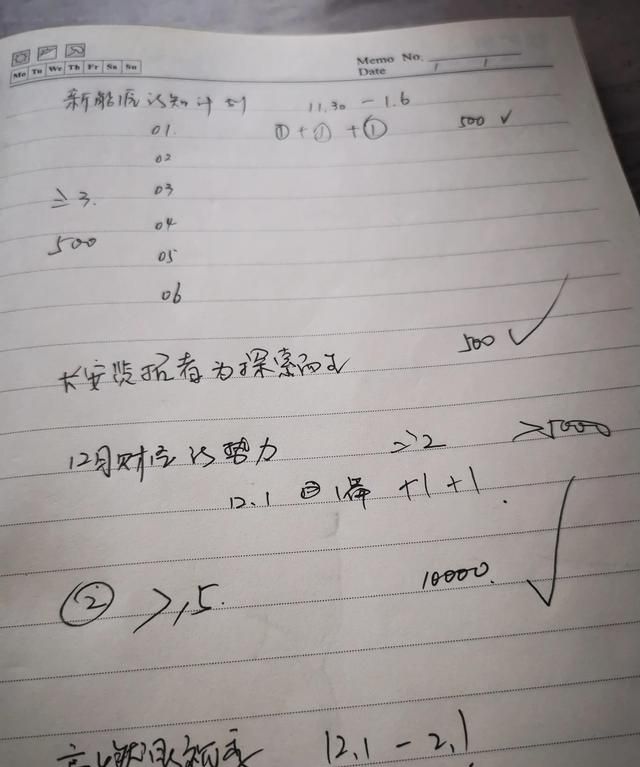 Memo No.
Mo Tu We Th Fr Sa Su
Date / /
新能源认知计划 11.30 - 1.6
01. ①+①+① 500 ✓
02
≥3. 03
04
500 05
06
长安览拓者为探索而生 500 ✓
12月财经新势力 ≥2 >5000
12.1 ② 1篇 +1 +1.
10000. ✓
② >,5.
12.1 - 2.1